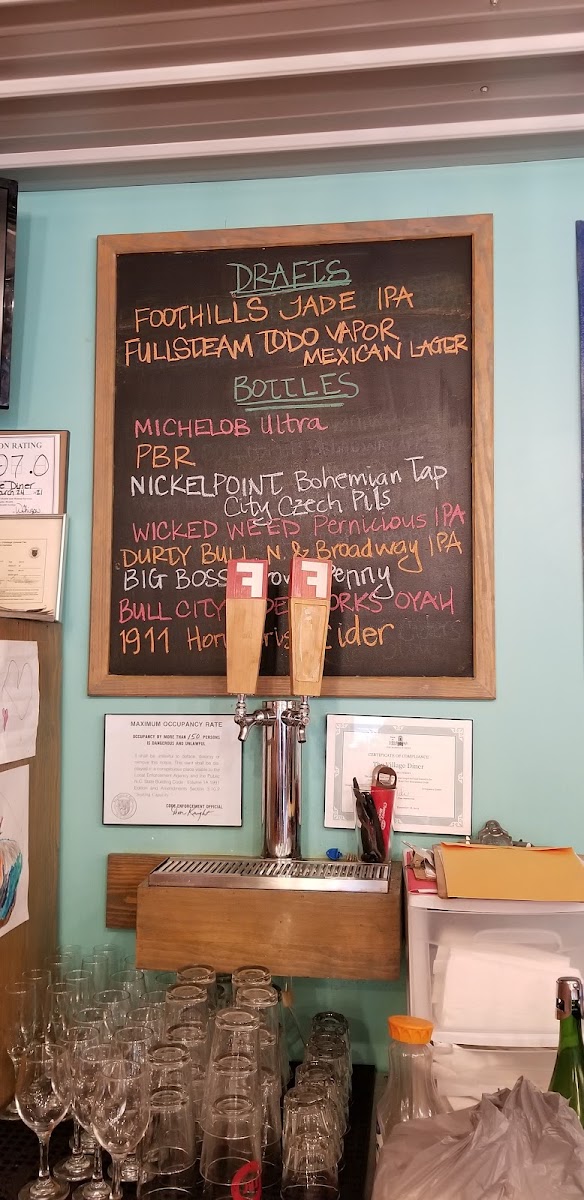 DRAFTS
FOOTHILLS JADE IPA
FULLSTEAM TODO VAPOR
MEXICAN LAGER
BOTTLES
MICHELOB Ultra
PBR
NICKELPOINT Bohemian Tap
City Czech Pils
WICKED WEED Pernicious IPA
DURTY BULL N. & Broadway IPA
BIG BOSS Penny
BULL CITY OYAH
1911 Cider
ON RATING
97.0
Diner
MAXIMUM OCCUPANCY RATE
OCCUPANCY BY MORE THAN 150 PERSONS
IS DANGEROUS AND UNLAWFUL
CODE ENFORCEMENT OFFICIAL
CERTIFICATE OF COMPLIANCE
The Village Diner
F
F